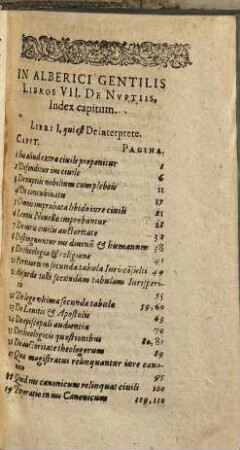 IN ALBERICI GENTILIS
LIBROS VII. DE NVPTIIS,
Index capitum.
LIBRI I, qui est De interprete.
CAPIT. PAGINA.
1 Ius aliud extra ciuile proponitur 1
2 Defenditur ius ciuile 6
3 De nuptiis nobilium cum plebeis 11
4 De concubinatu 17
5 Omnis improbata libido iure ciuili 21
6 Leonis Nouella improbantur 28
7 De iuris ciuilis auctoritate 32
8 Distinguuntur ius diuinū & humanum 38
9 De theologia & religione
10 Partitur in secunda tabula
11 secundam tabulam
12 De lege vltima secunda tabula 59, 60
13 De Leuitis & Apostolis 65
14 De episcopali audientia 70
15 De theologicis quæstionibus 80, 81
16 De auctoritate theologorum 89
17 Qua magistratus relinquantur iure cano-
nico 95
18 Quid ius canonicum relinquat ciuili 100
19 Peroratio in ius Canonicum 109, 110